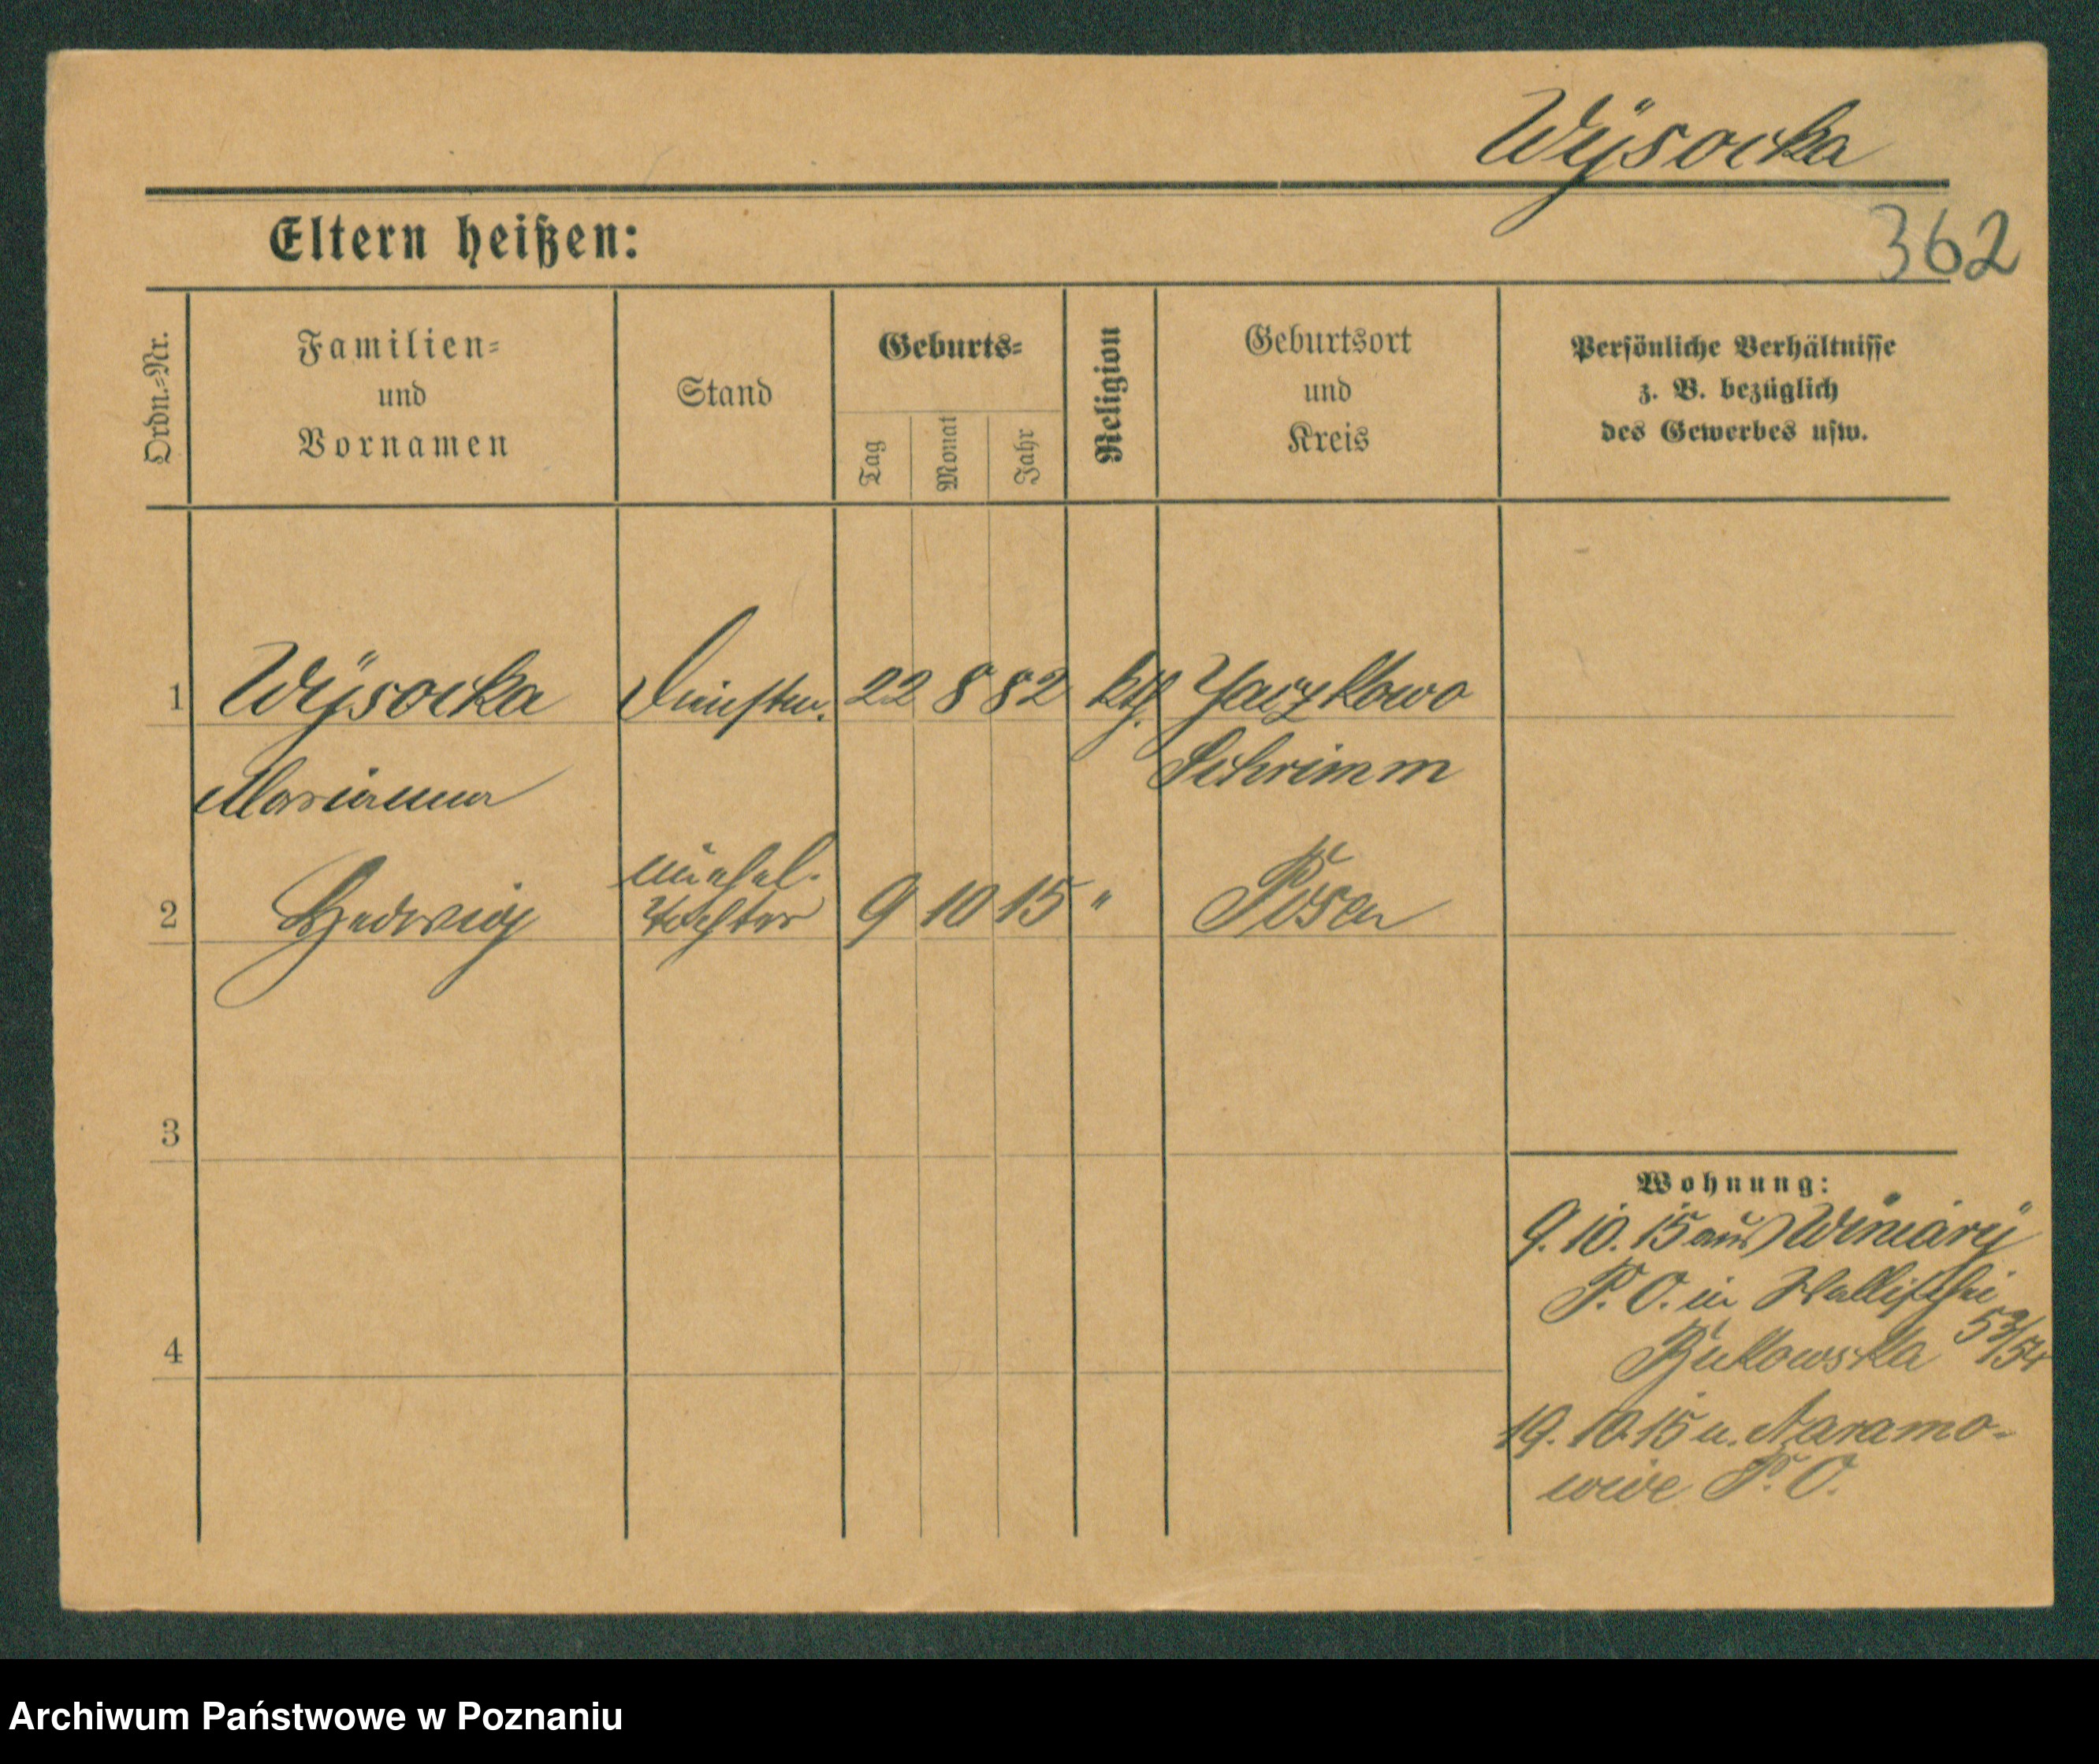 Wÿsocka
Eltern heißen:
362
Ordn.=Nr.
Familien=
und
Vornamen
Stand
Geburts=
Tag
Monat
Jahr
Religion
Geburtsort
und
Kreis
Persönliche Verhältnisse
z. B. bezüglich
des Gewerbes usw.
1 Wÿsocka 22 8 82 kth.
Schrimm
Marianna
unehel.
2 Hedwig Tochter 9 10 15 " Posen
3
Wohnung:
9. 10. 15 aus Winiarÿ
P. O. in
4
Bukowska 53/54
19. 10. 15 n. Naramo-
wice P. O.
Archiwum Państwowe w Poznaniu